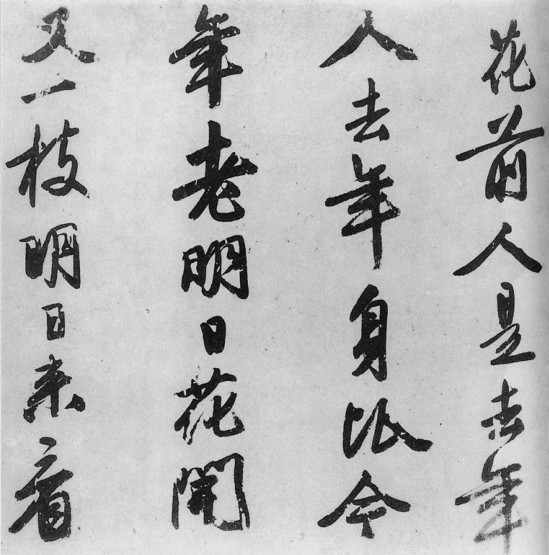 花前人是去年
人去年身比今
年老明日花開
又一枝明日来看